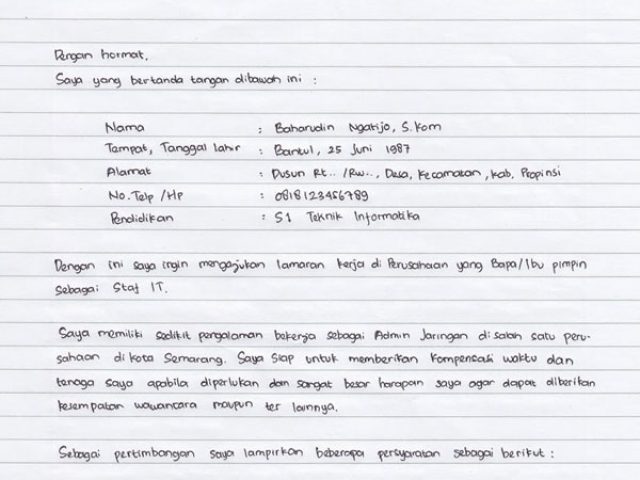 Dengan hormat,
Saya yang bertanda tangan dibawah ini :
Nama : Baharudin Ngatijo, S.Kom
Tempat, Tanggal lahir : Bantul, 25 Juni 1987
Alamat : Dusun Rt.. /Rw.., Desa, Kecamatan, Kab, Propinsi
No. Telp /Hp : 0818123456789
Pendidikan : S1 Teknik Informatika
Dengan ini saya ingin mengajukan lamaran kerja di Perusahaan yang Bapa/Ibu pimpin
sebagai Staf IT.
Saya memiliki sedikit pengalaman bekerja sebagai Admin Jaringan di salah satu peru-
sahaan di kota Semarang. Saya Siap untuk memberikan Kompensasi waktu dan
tenaga saya apabila diperlukan dan sangat besar harapan saya agar dapat diberikan
kesempatan wawancara maupun tes lainnya.
Sebagai pertimbangan saya lampirkan beberapa persyaratan sebagai berikut :